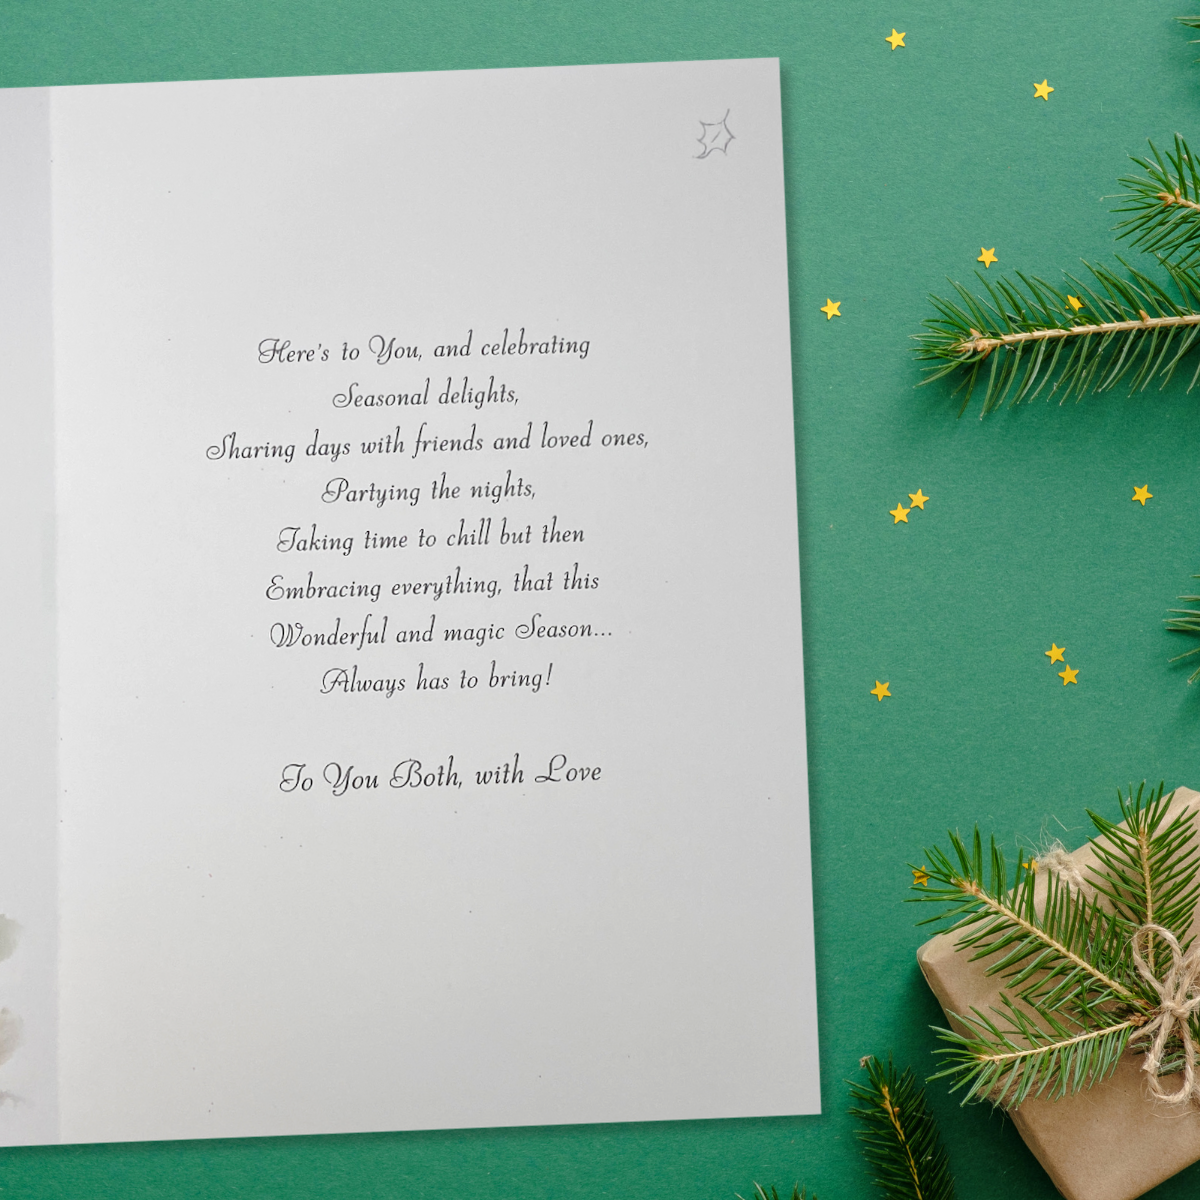 Here's to You, and celebrating
Seasonal delights,
Sharing days with friends and loved ones,
Partying the nights,
Taking time to chill but then
Embracing everything, that this
Wonderful and magic Season...
Always has to bring!
To You Both, with Love